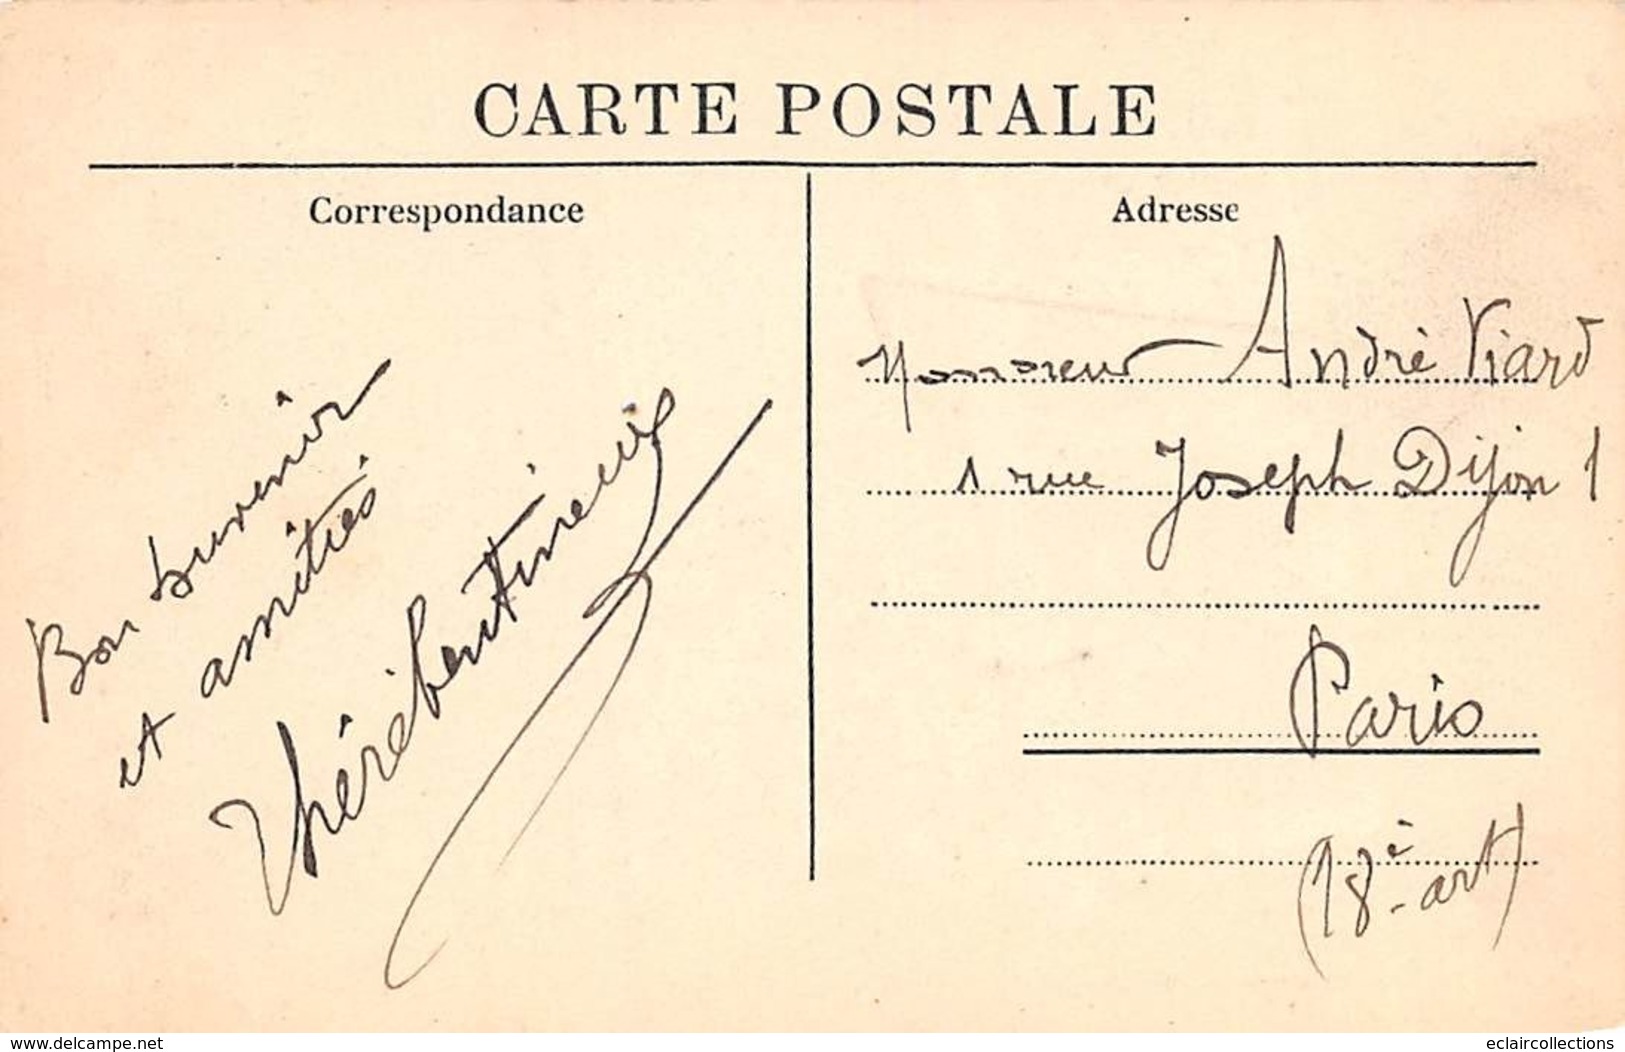 CARTE POSTALE
Correspondance
Bon souvenir
et amitiés
Adresse
Monsieur André Viard
1 rue Joseph Dijon 1
Paris
(18è art)
delcampe.net
eclaircollections